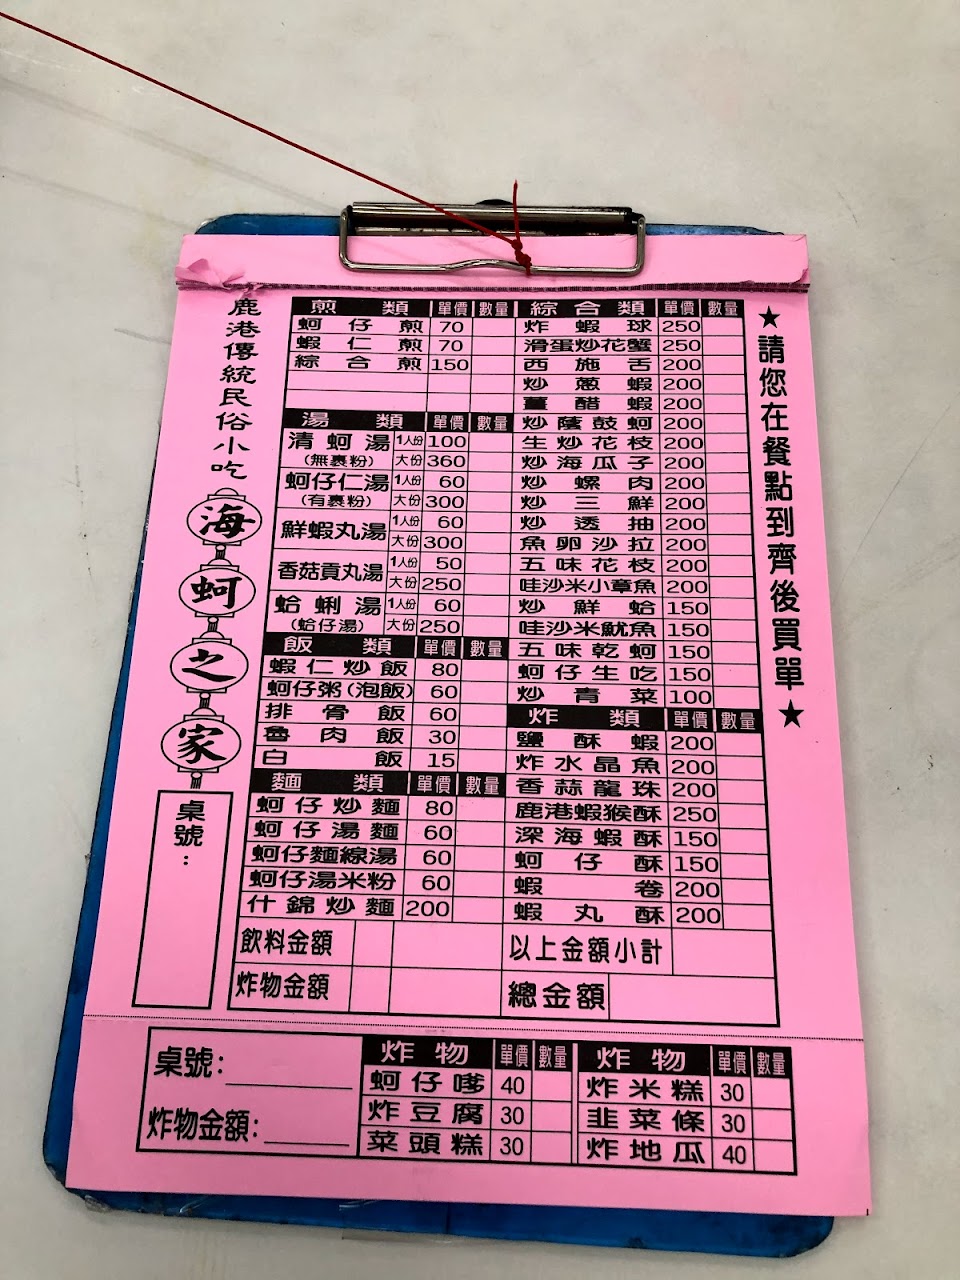 鹿港傳統民俗小吃
海蚵之家
桌號：
煎類 單價 數量
蚵仔煎 70
蝦仁煎 70
綜合煎 150
湯類 單價 數量
清蚵湯 1人份 100
(無裹粉) 大份 360
蚵仔仁湯 1人份 60
(有裹粉) 大份 300
鮮蝦丸湯 1人份 60
大份 300
香菇貢丸湯 1人份 50
大份 250
蛤蜊湯 1人份 60
(蛤仔湯) 大份 250
飯類 單價 數量
蝦仁炒飯 80
蚵仔粥(泡飯) 60
排骨飯 60
魯肉飯 30
白飯 15
麵類 單價 數量
蚵仔炒麵 80
蚵仔湯麵 60
蚵仔麵線湯 60
蚵仔湯米粉 60
什錦炒麵 200
飲料金額
炸物金額
綜合類 單價 數量
炸蝦球 250
滑蛋炒花蟹 250
西施舌 200
炒蔥蝦 200
薑醋蝦 200
炒蔭鼓蚵 200
生炒花枝 200
炒海瓜子 200
炒螺肉 200
炒三鮮 200
炒透抽 200
魚卵沙拉 200
五味花枝 200
哇沙米小章魚 200
炒鮮蛤 150
哇沙米魷魚 150
五味乾蚵 150
蚵仔生吃 150
炒青菜 100
炸類 單價 數量
鹽酥蝦 200
炸水晶魚 200
香蒜龍珠 200
鹿港蝦猴酥 250
深海蝦酥 150
蚵仔酥 150
蝦卷 200
蝦丸酥 200
以上金額小計
總金額
★請您在餐點到齊後買單★
桌號:
炸物金額:
炸物 單價 數量
蚵仔嗲 40
炸豆腐 30
菜頭糕 30
炸物 單價 數量
炸米糕 30
韭菜條 30
炸地瓜 40